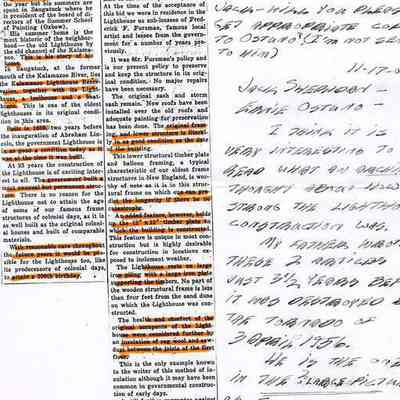 he year but his summers are
spent in Saugatuck, where he
is president of the board of di-
rectors of the Summer School
of Painting (Oxbow).
His summer home is the
most historic of the neighbor-
hood — the Old Lighthouse by
the old channel of the Kalama-
zoo. This is his story of its
In Saugatuck, at the former
mouth of the Kalamazoo River, lies
together with its Light-
This is one of the oldest
lighthouses in its original condi-
tion in this area.
Built in two years before
the inauguration of Abraham Lin-
coln, the government Lighthouse is
in as good a condition today as it
was at the time it was built.
the construction of
the Lighthouse is of exciting inter-
est to all. The government built a
There is no reason for the
Lighthouse not to attain the age
of some of our famous frame
structures of colonial days, as it is
as well built as the original coloni-
al houses and built of comparable
materials.
With reasonable care throughout
the future years it would be pos-
sible for the Lighthouse too, like
its predecessors of colonial days,
to attain a 200th birthday.
At the time of the acceptance of
this bid we were in residence in the
Lighthouse as sub-lessees of Fred-
erick F. Fursman, famous local
artist and lessee from the govern-
ment for a number of years pre-
viously.
It was Mr. Fursman's policy and
is our present policy to preserve
and keep the structure in its orig-
inal condition. No major repairs
have been necessary.
The original sash and storm
sash remain. New roofs have been
installed over the old roofs and
adequate painting for preservation
has been done. The original fram-
ing and lower structure is literal-
ly in as good condition as the day
of the building.
This lower structural timber plate
and balloon framing, a typical
characteristic of our oldest frame
structures in New England, is wor-
thy of note as it is in this struc-
tural frame on which one can pre-
dict the longevity if there be no
catastrophe.
An added feature, however, holds
up the 12" x 12" timber plate on
which the building is constructed.
This feature is unique in most con-
struction but is highly desirable
for construction in locations ex-
posed to inclement weather.
The Lighthouse rests on large
iron pilings with a large iron plate
supporting the timbers. No part of
the wooden structural frame is less
than four feet from the sand dune
on which the Lighthouse was con-
structed.
The health and comfort of the
original occupants of the Light-
house were considered further by
an insulation of very mud and saw-
dust between the joists of the first
floor.
This is the only example known
to the writer of this method of in-
sulation although it may have been
common to governmental construc-
tion of early days.
Jack - Will you please
get appropriate copies
to Ostano? (I'm not sending
to him)
11-17-
Jack Sheridon -
Ernie Ostano -
I think it is
very interesting to
read what an
thought about how
strong the lighthouse
construction was.
My father
these 2 articles
just 3½ years before
it was destroyed by
the tornado of
3 April 1956.
He is the one
in the 2 large pictures